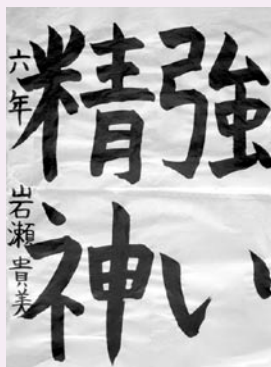 強い
精神
六年 岩瀬貴美